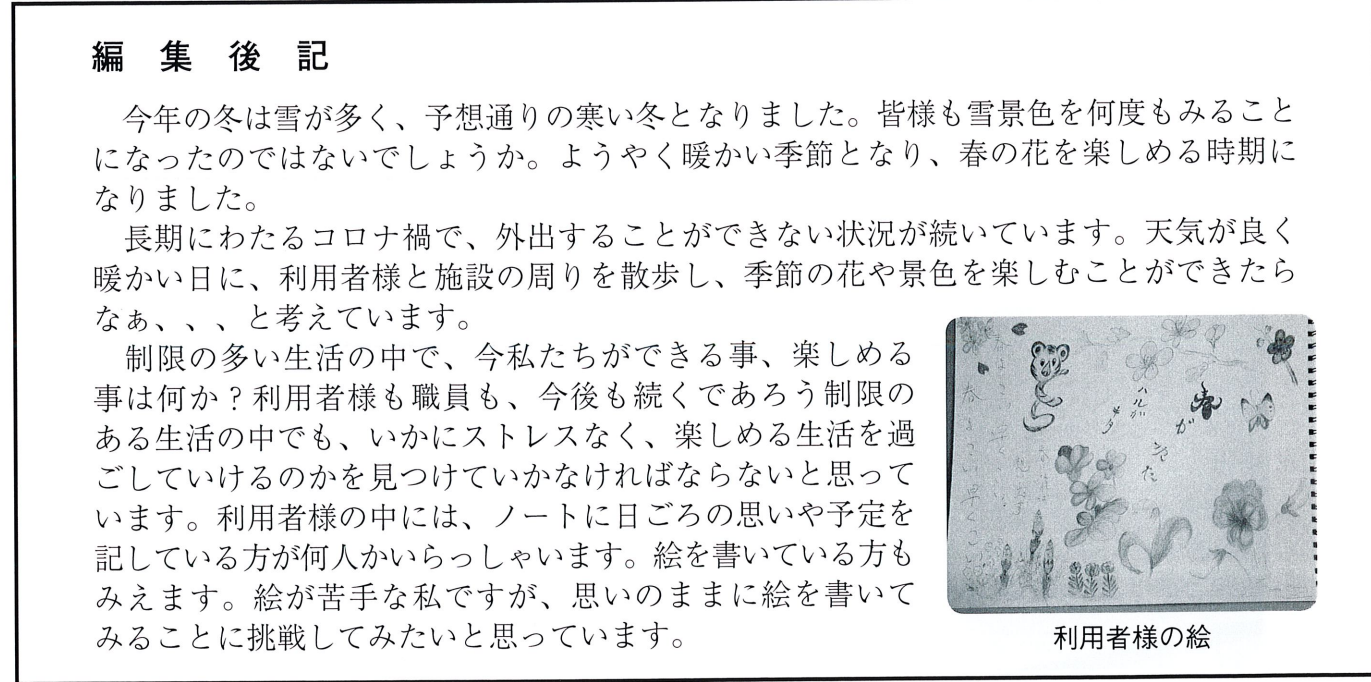 編 集 後 記
　今年の冬は雪が多く、予想通りの寒い冬となりました。皆様も雪景色を何度もみること
になったのではないでしょうか。ようやく暖かい季節となり、春の花を楽しめる時期に
なりました。
　長期にわたるコロナ禍で、外出することができない状況が続いています。天気が良く
暖かい日に、利用者様と施設の周りを散歩し、季節の花や景色を楽しむことができたら
なぁ、、、と考えています。
　制限の多い生活の中で、今私たちができる事、楽しめる
事は何か？利用者様も職員も、今後も続くであろう制限の
ある生活の中でも、いかにストレスなく、楽しめる生活を過
ごしていけるのかを見つけていかなければならないと思って
います。利用者様の中には、ノートに日ごろの思いや予定を
記している方が何人かいらっしゃいます。絵を書いている方も
みえます。絵が苦手な私ですが、思いのままに絵を書いて
みることに挑戦してみたいと思っています。
春がきた
ハルガ
キタ
利用者様の絵